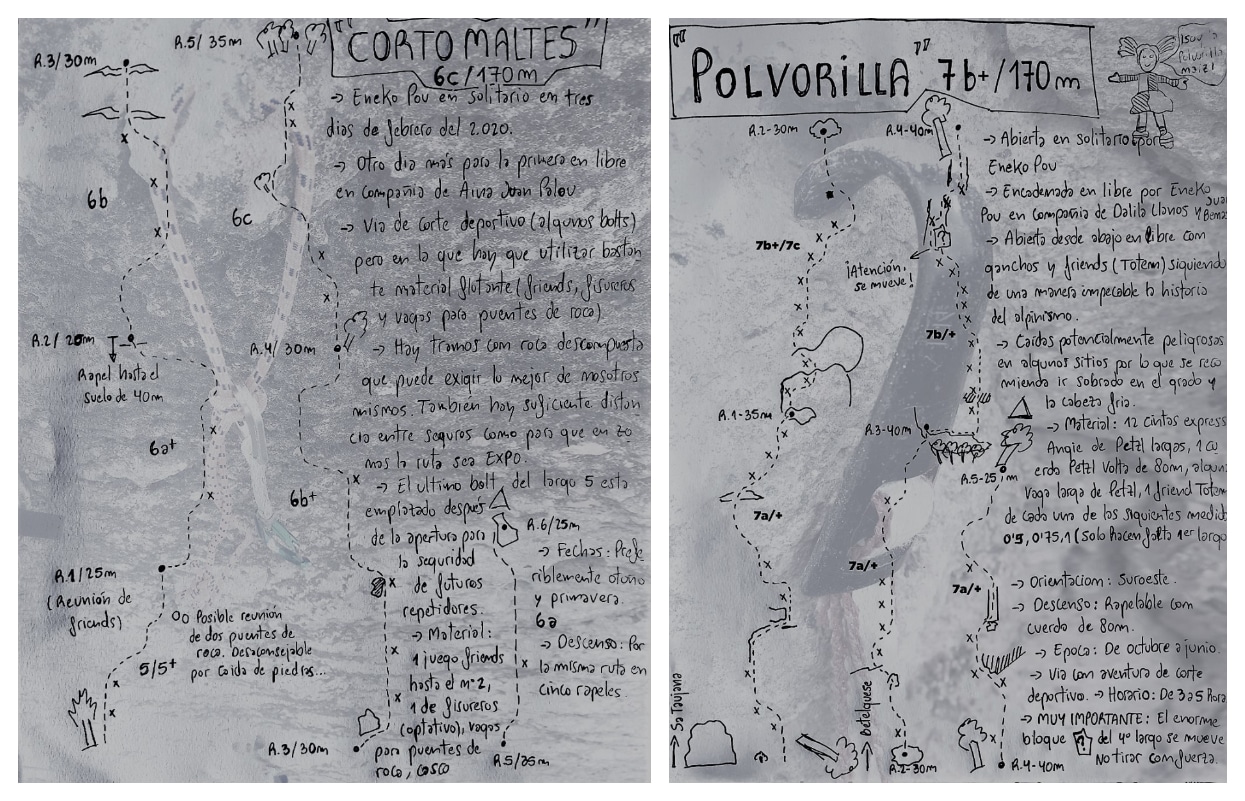 "CORTO MALTES"
6c/170m
R.3/30m
R.5/35m
→ Eneko Pou en solitario en tres
dias de febrero del 2.020.
→ Otro dia mas para la primera en libre
en compañia de Aina Joan Palou
→ Via de corte deportivo (algunos bolts)
pero en la que hay que utilizar bastan
te material flotante (friends, fisureros
y vagas para puentes de roca)
→ Hay tramos con roca descompuesta
que puede exigir lo mejor de nosotros
mismos. También hay suficiente distan
cia entre seguros como para que en zo
nas la ruta sea EXPO.
→ El ultimo bolt, del largo 5 esta
emplatado después
de la apertura para
la seguridad
de futuros
repetidores.
→ Material:
1 juego friends
hasta el nº2,
1 de fisureros
(optativo), vagas
para puentes de
roca, casco
6b
6c
R.2/20m
Rapel hasta el
suelo de 40m
R.4/30m
6a+
6b+
R.6/25m
→ Fechas: Prefe
riblemente otoño
y primavera.
6a
→ Descenso: Por
la misma ruta en
cinco rapeles.
R.1/25m
(Reunión de
friends)
Posible reunión
de dos puentes de
roca. Desaconsejable
por caida de piedras...
5/5+
R.3/30m
R.5/35m
"POLVORILLA" 7b+/170m
¡Soy la
Polvorilla
R.2-30m
R.4-40m
→ Abierta en solitario por
Eneko Pou
→ Encadenada en libre por Eneko
Pou en compañia de Dalila Llanos y
→ Abierta desde abajo en libre con
ganchos y friends (Totem) siguiendo
de una manera impecable la historia
del alpinismo.
→ Caidas potencialmente peligrosas
en algunos sitios por lo que se reco
mienda ir sobrado en el grado y
la cabeza fria.
→ Material: 12 cintas express
Angie de Petzl largas, 1 cu
erda Petzl Volta de 80m, alguna
Vaga larga de Petzl, 1 friend Totem
de cada uno de los siguientes medid
0'5, 0'75, 1 (Solo hacen falta 1er largo
→ Orientacion: Suroeste.
→ Descenso: Rapelable con
cuerda de 80m.
→ Epoca: De octubre a junio.
→ Via con aventura de corte
deportivo. → Horario: De 3 a 5 Hora
→ MUY IMPORTANTE: El enorme
bloque del 4º largo se mueve
No tirar con fuerza.
7b+/7c
¡Atención,
se mueve!
7b/+
R.1-35m
R.3-40m
R.5-25m
7a/+
7a/+
7a/+
Sa Taujana
Betelquese
R.2-30m
R.4-40m